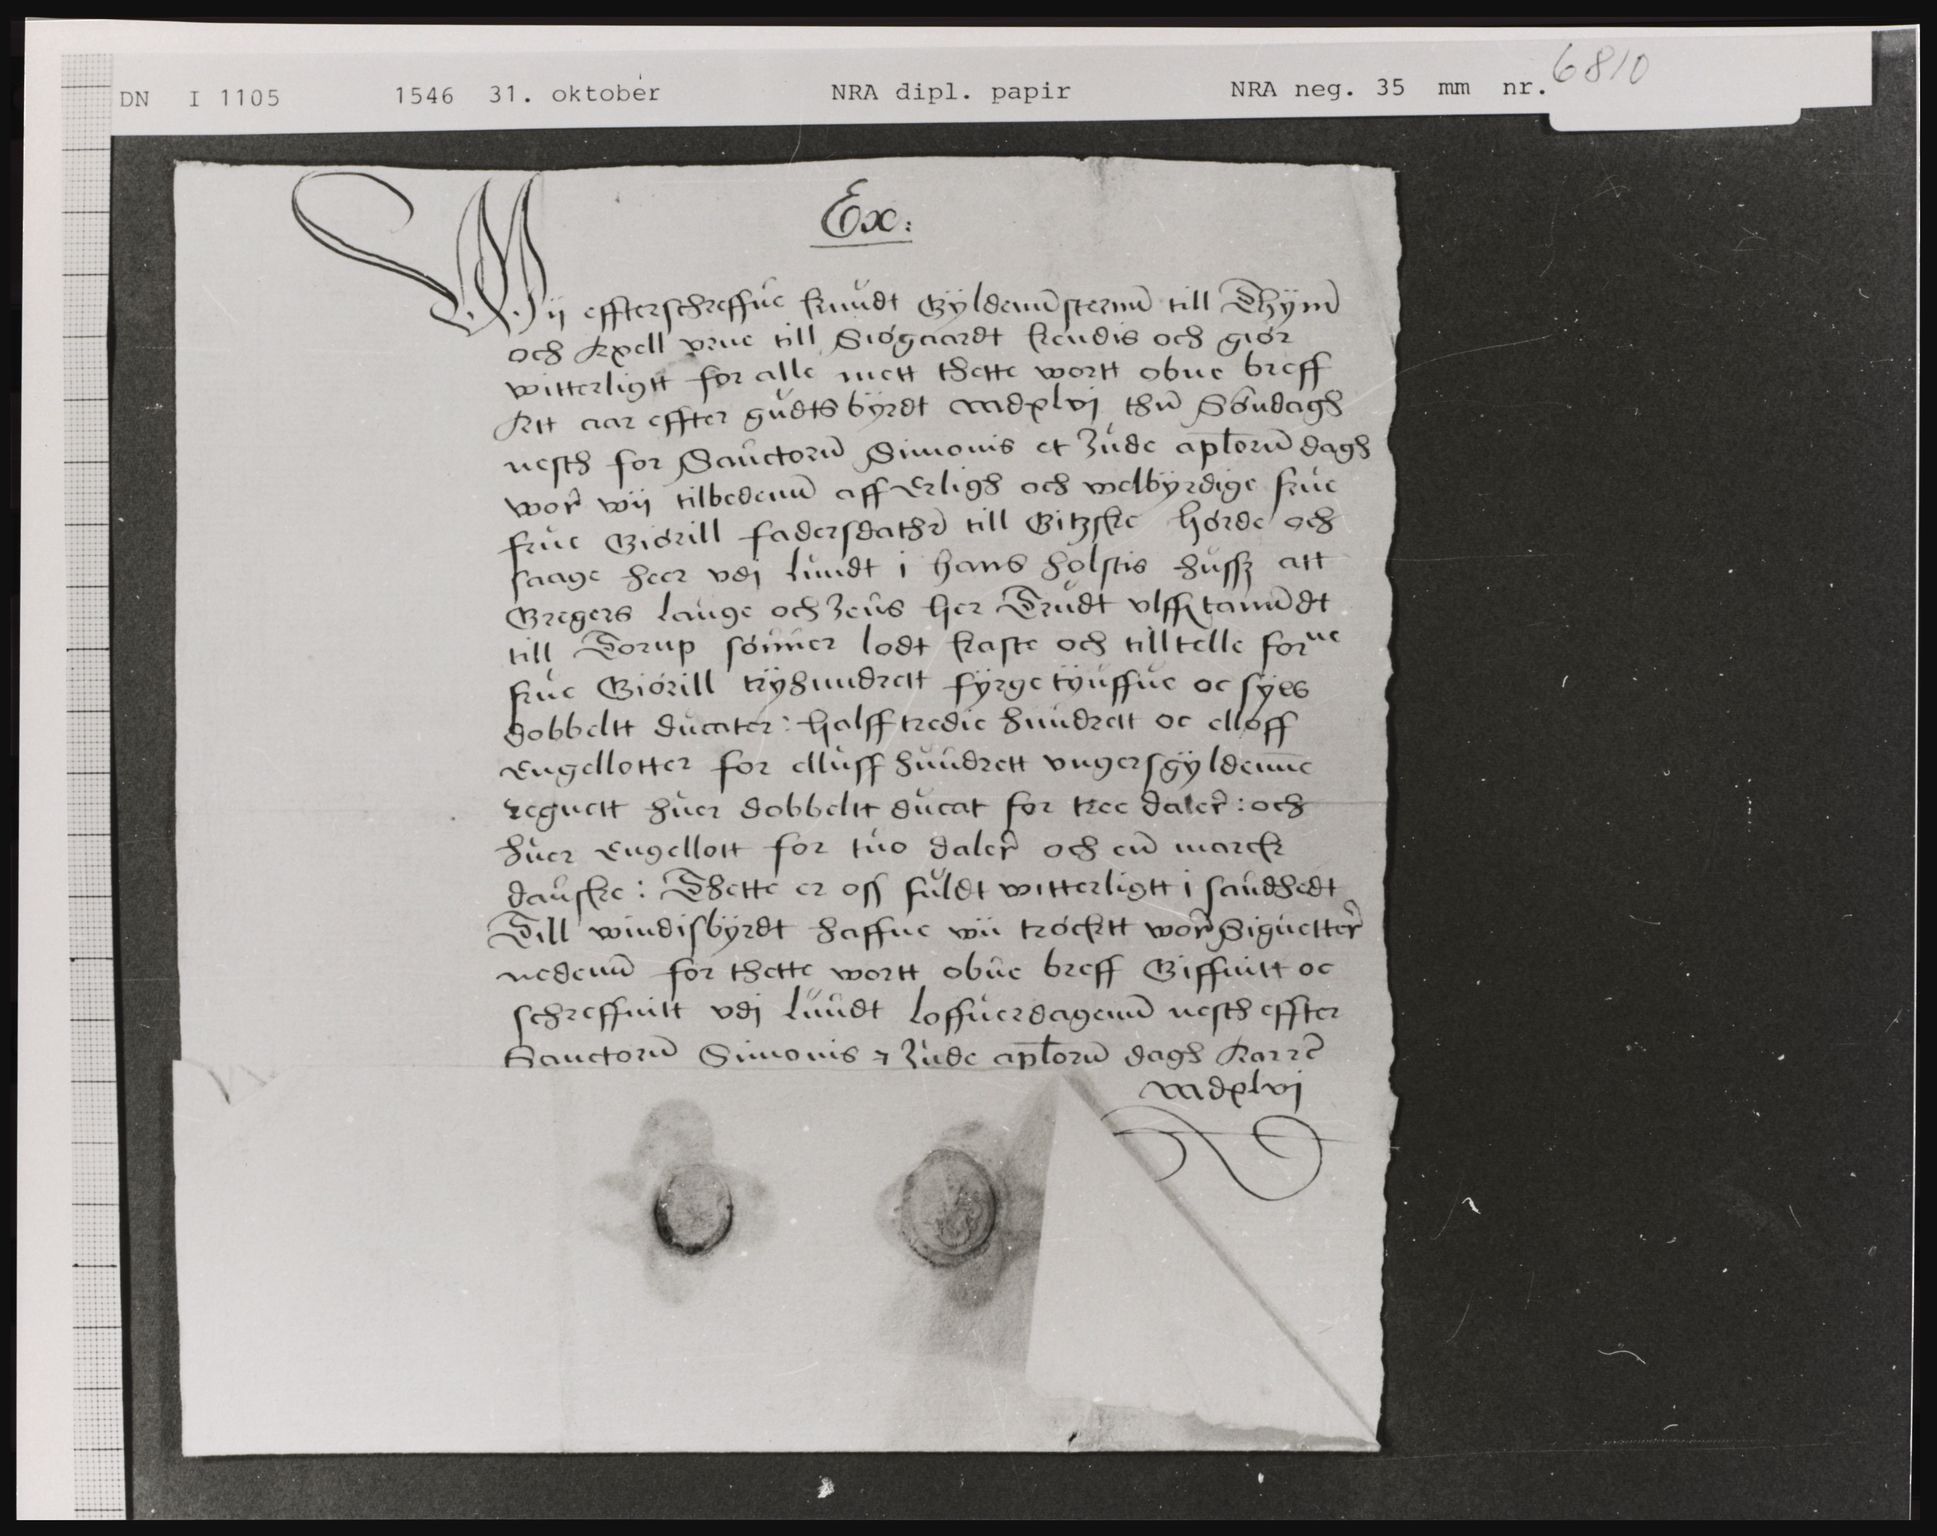 DN I 1105 1546 31. oktober NRA dipl. papir NRA neg. 35 mm nr. 6810
Ex:
Wij effterschreffne knudt Gÿldennsternn till Thÿm
och Axell vrne till Siógaardt kendis och giór
witterligtt for alle mett thette wortt obne breff
Att aar effter gudts bÿrdt mdxlvj thn Sóndagh
nesth for Sanctorum Simonis et Jude aplorum dagh
wor wij tilbedenn aff Erligh och welbÿrdige frue
frue Giórill fadersdather till Gitzske hórde och
saage heer vdj lundt i hans holstis hussz att
Gregers lauge och Jens her Trudt vlffztanndt
till Torup sónner lodt kaste och tilltelle forne
frue Giórill trÿhundrett fÿrgetÿuffue oc sÿes
dobbeltt ducater: halfftredie hundrett oc elloff
Engellotter for elluff hundrett vngersgÿldenne
regnett huer dobbeltt ducat for tree daler: och
huer Engellott for tuo daler och en marck
danske: Thette er oss fuldt witterligtt i sandhedt
Till windisbÿrdt haffue wii trócktt wor Signetter
nedenn for thette wortt obne breff Giffuitt oc
schreffuitt vdj lundt loffuerdagenn nesth effter
Sanctorum Simonis et Jude aplorum dagh Aar rc
mdxlvj